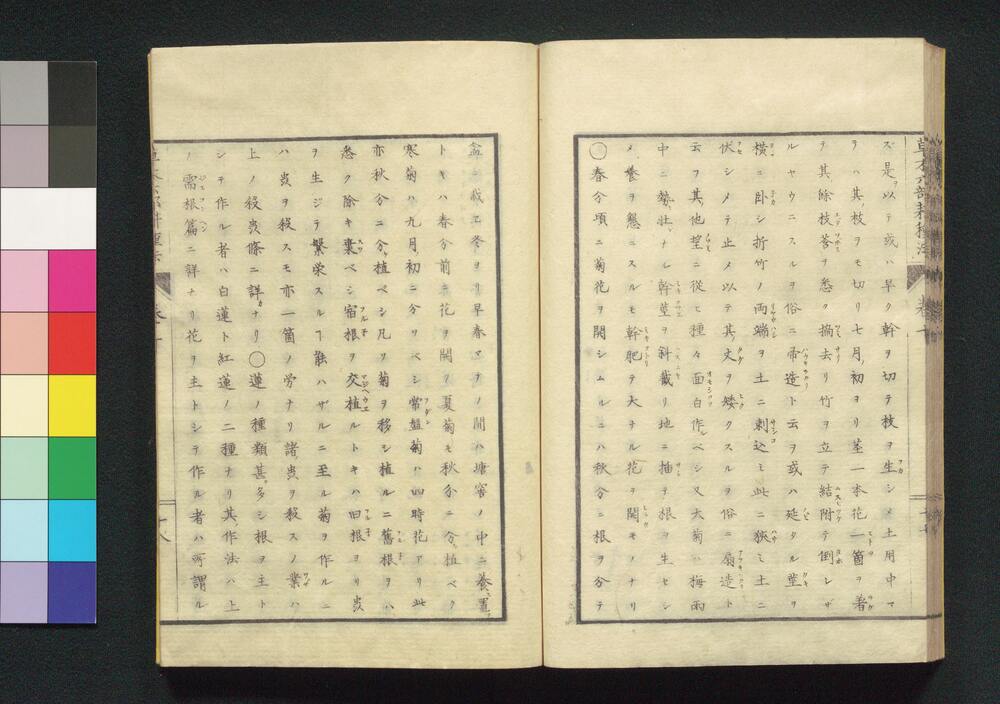 草木六部耕種法
卷十
十七
ズ是ヲ以テ或ハ早ク幹ヲ切テ枝ヲ生シメ土用中マ
ラハ其枝ヲモ切リ七月初ヨリ茎一本花一箇ヲ着
テ其餘枝莟ヲ悉ク摘去リ竹ヲ立テ結附テ倒レザ
ルヤウニスルヲ俗ニ帚造ト云ヲ或ハ延タル莖ヲ
横ニ卧シ折竹ノ両端ヲ土ニ刺込ミ此ニ狹ミ土ニ
伏シメテ止メ以テ其丈ヲ矮クスルヲ俗ニ扇造ト
云フ其他望ニ從ヒ種々面白作ベシ又大菊ハ梅雨
中ニ勢壮ナレ幹莖ヲ斜截リ地ニ揷テ根ヲ生セシ
メ養ヲ懇ニスルモ幹肥テ大ナル花ヲ開モノナリ
◯春分頃ニ菊花ヲ開シムルニハ秋分ニ根ヲ分テ
盆ニ栽エ冬ヨリ早春マテノ間ハ塘窖ノ中ニ養置
トキハ春分前ニ花ヲ開ク夏菊モ秋分ニ分植ベク
寒菊ハ九月初ニ分ツベシ常盤菊ハ四時花アリ此
亦秋分ニ分植ベシ凡ソ菊ヲ移シ植ルニ舊根ヲハ
悉ク除キ棄ベシ宿根ヲ交植ルトキハ旧根ヨリ蟲
ヲ生ジテ繁栄スルヿ能ハザルニ至ル菊ヲ作ルニ
ハ蟲ヲ殺スモ亦一箇ノ労ナリ諸蟲ヲ殺スノ業ハ
上ノ殺蟲條ニ詳ナリ◯蓮ノ種類甚多シ根ヲ主ト
シテ作ル者ハ白蓮ト紅蓮ノ二種ナリ其作法ハ上
ノ需根篇ニ詳ナリ花ヲ主トシテ作ル者ハ所謂ル
十八